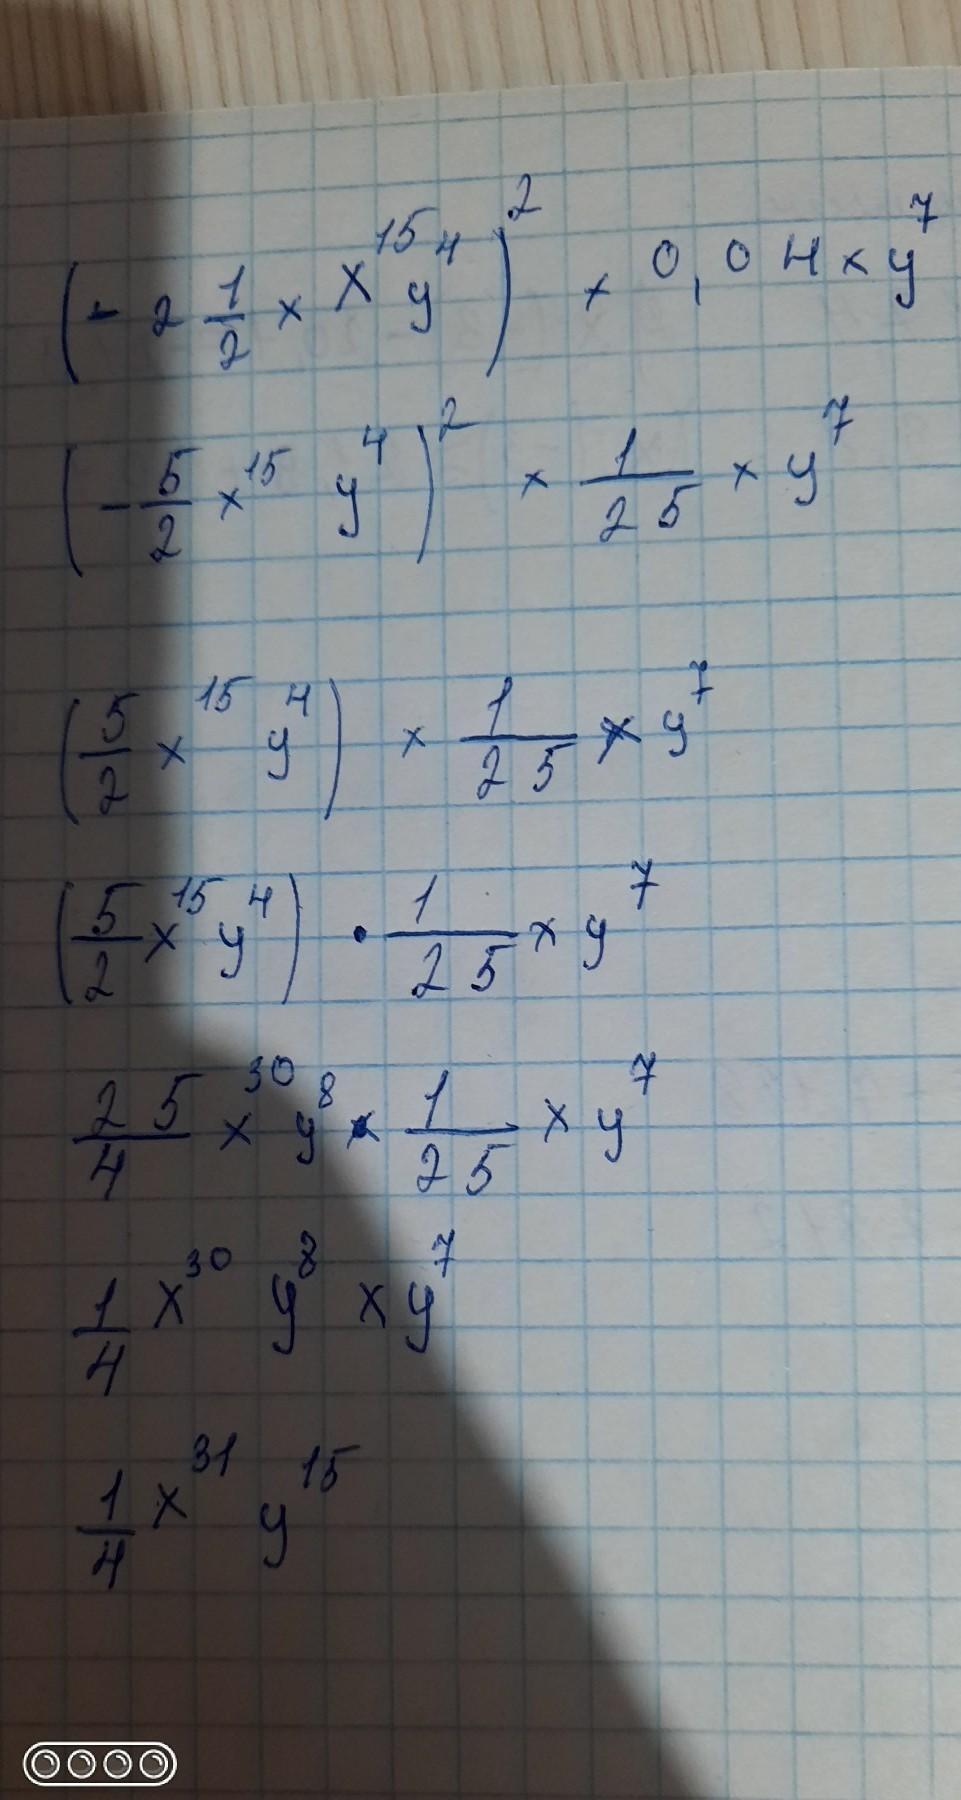 (- 2 1/2 × x^15 y^4)^2 × 0,04 × y^7
(- 5/2 x^15 y^4)^2 × 1/25 × y^7
(5/2 x^15 y^4) × 1/25 × y^7
(5/2 x^15 y^4) · 1/25 × y^7
25/4 x^30 y^8 × 1/25 × y^7
1/4 x^30 y^8 × y^7
1/4 x^31 y^15